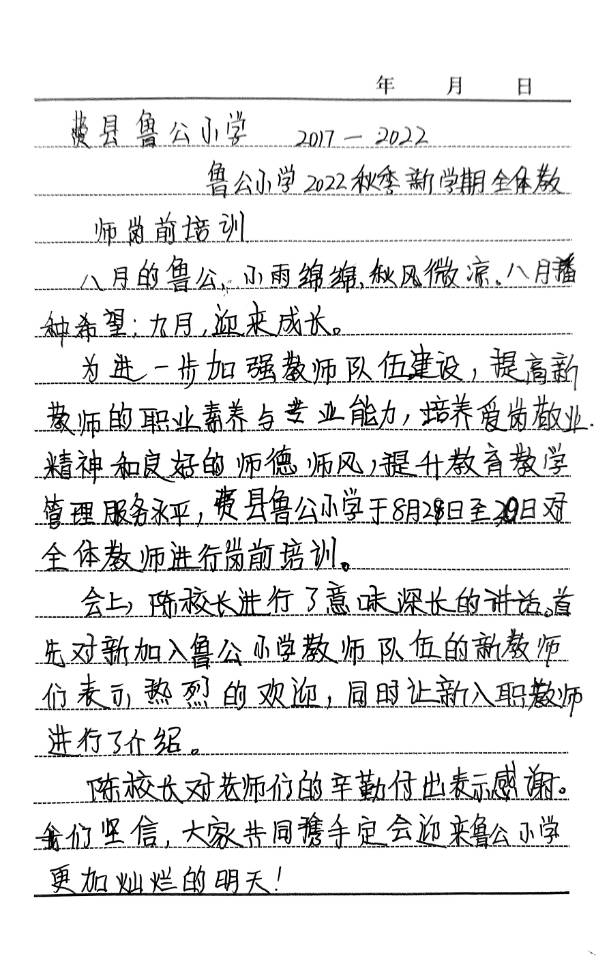 年 月 日
费县鲁公小学 2017—2022
鲁公小学2022秋季新学期全体教
师岗前培训
八月的鲁公,小雨绵绵,秋风微凉。八月播
种希望;九月,迎来成长。
为进一步加强教师队伍建设,提高新
教师的职业素养与专业能力,培养爱岗敬业
精神和良好的师德师风,提升教育教学
管理服务水平,费县鲁公小学于8月28日至29日对
全体教师进行岗前培训。
会上,陈校长进行了意味深长的讲话。首
先对新加入鲁公小学教师队伍的新教师
们表示热烈的欢迎,同时让新入职教师
进行了介绍。
陈校长对老师们的辛勤付出表示感谢。
我们坚信,大家共同携手定会迎来鲁公小学
更加灿烂的明天!